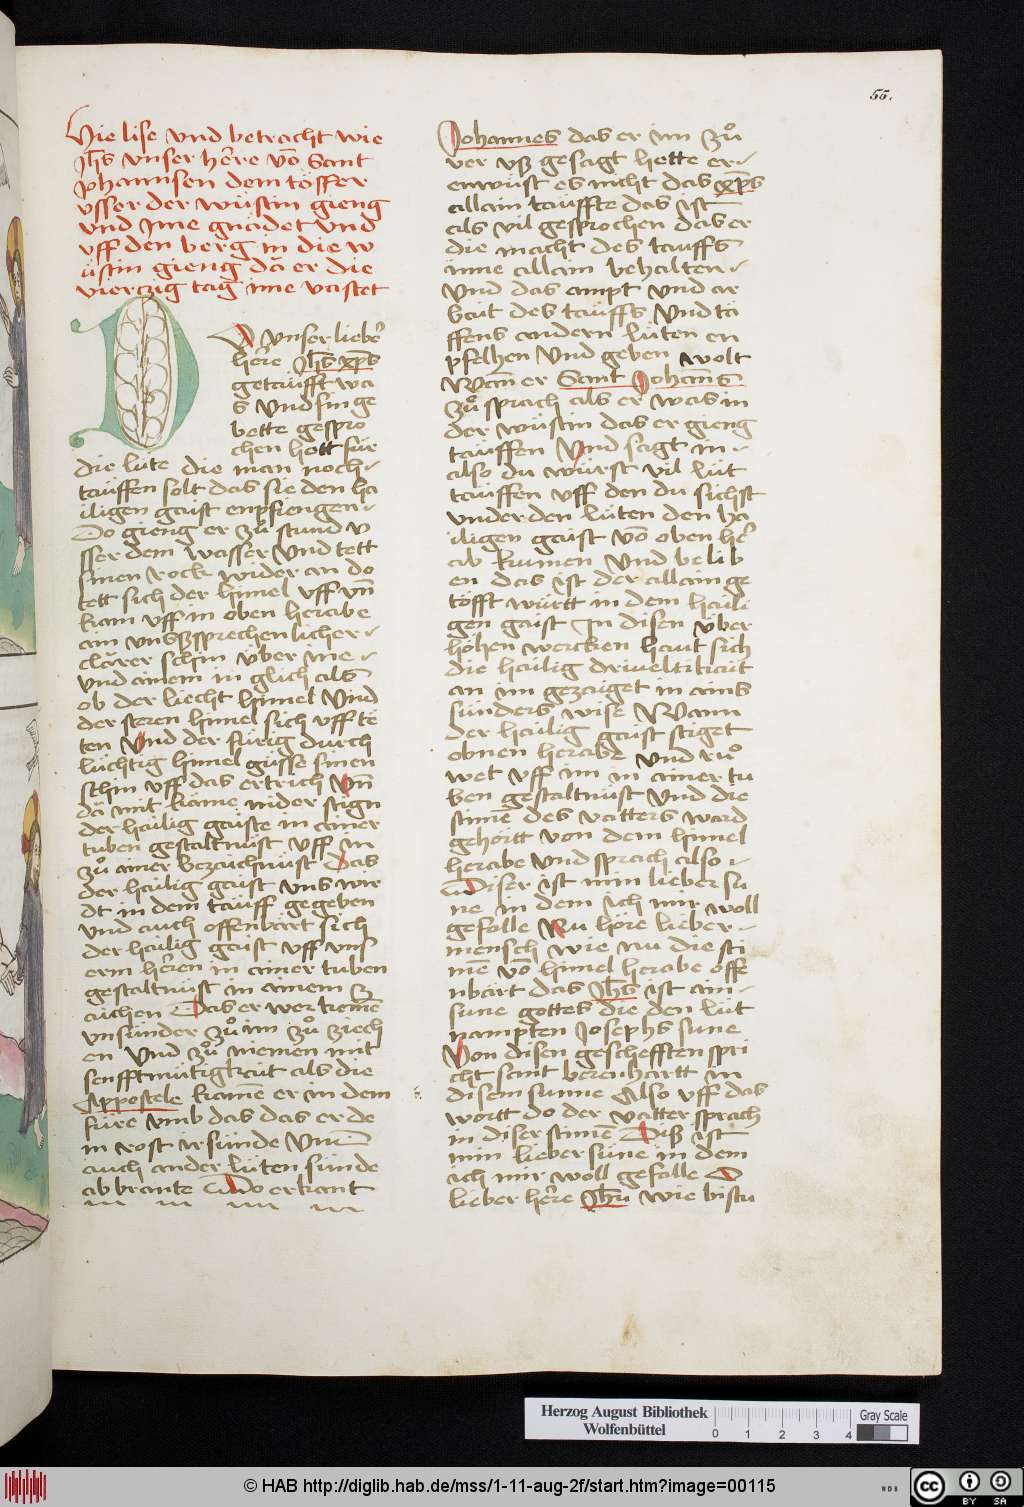 55.
Hie lise vnd betracht wie
Jhs vnser herre vō Sant
Johannsen dem töffer
vsser der wüstin gieng
vnd ime gnadet vnd
vff den berg in die w
üstin gieng da er die
vierzig tag ime vastet
DO vnser lieber
herre Jhs xp̄s
getäufft wa
s vnd sin ge
bette gespro
chen hott für
die lüte die man noch
täuffen solt das sie den ha
iligen gaist enpfiengen
Do gieng er zů stund v
sser dem wasser vnd tett
sinen rock wider an do
tett sich der himel vff vn̄
kam vff in oben herabe
ain vnußsprechenlicher
clarer schin über ine
vnd ainem in glich als
ob der liecht himel vnd
der steren himel sich vff të
ten vnd der fürig durch
lüchtig himel güsse sinen
schin vff das ertrich vn̄
da mit käme nider stign
der hailig gaiste in ainer
tuben gestaltnüst vff in
zů ainer bezaichnüst Das
der hailig gaist vns wir
dt in dem tauff gegeben
vnd auch offenbärt sich
der hailig gaist vff vns
erm herren in ainer tuben
gestaltnüst in ainem z
aichen Das er wer komē
vnsünder zů im zů ziech
en vnd zů niemen mit
senfftmütigkait als die
Appostele kamē er in dem
füre vmb das das er de
in rost ir sünde vnd
auch ander lüten sünde
ab brante Do erkant
Johannes das er im zů
ver vß gesagt hette er
enwüst es nicht das xp̄s
allain täuffte das ist
als vil gesprochen das er
die macht des tauffs
ime allain behalten
vnd das ampt vnd ar
bait des tauffs vnd tö
ffens andern lüten en
pfelhen vnd geben wolt
Wan er Sant Johans
zů sprach als er was in
der wüstin das er gieng
täuffen Vnd sagt im
also du würst vil lüt
täuffen vff den du sichst
vnder den lüten den ha
iligen gaist vō oben her
ab kumen vnd belib
en das ist der allain ge
töfft württ in dem haili
gen gaist In disen über
höhen wercken haut sich
die hailig driueltikait
an im gezaiget in ains
sünders wise Wann
der hailig gaist stiget
obnen herabe vnd rů
wet vff im in ainer tu
ben gestaltnüst vnd die
stimē des vatters ward
gehörtt von dem himel
herabe vnd sprach also
Diser ist min lieber su
ne in dem ich mir woll
gefalle Nu höre lieber
mensch wie nu die sti
mē vō himel herabe offe
nbärt das Jhs ist ain
sune gottes die den lüt
nampten Josephs sune
Von disen geschefften spri
cht sant bernhartt in
disem sunne Also vff das
wortt do der vatter sprach
in diser stimē Diß ist
min lieber sune in dem
ich mir woll gefalle O
lieber herre Jhu wie bistu
Herzog August Bibliothek
Wolfenbüttel
0 1 2 3 4
Gray Scale
© HAB http://diglib.hab.de/mss/1-11-aug-2f/start.htm?image=00115
cc BY SA